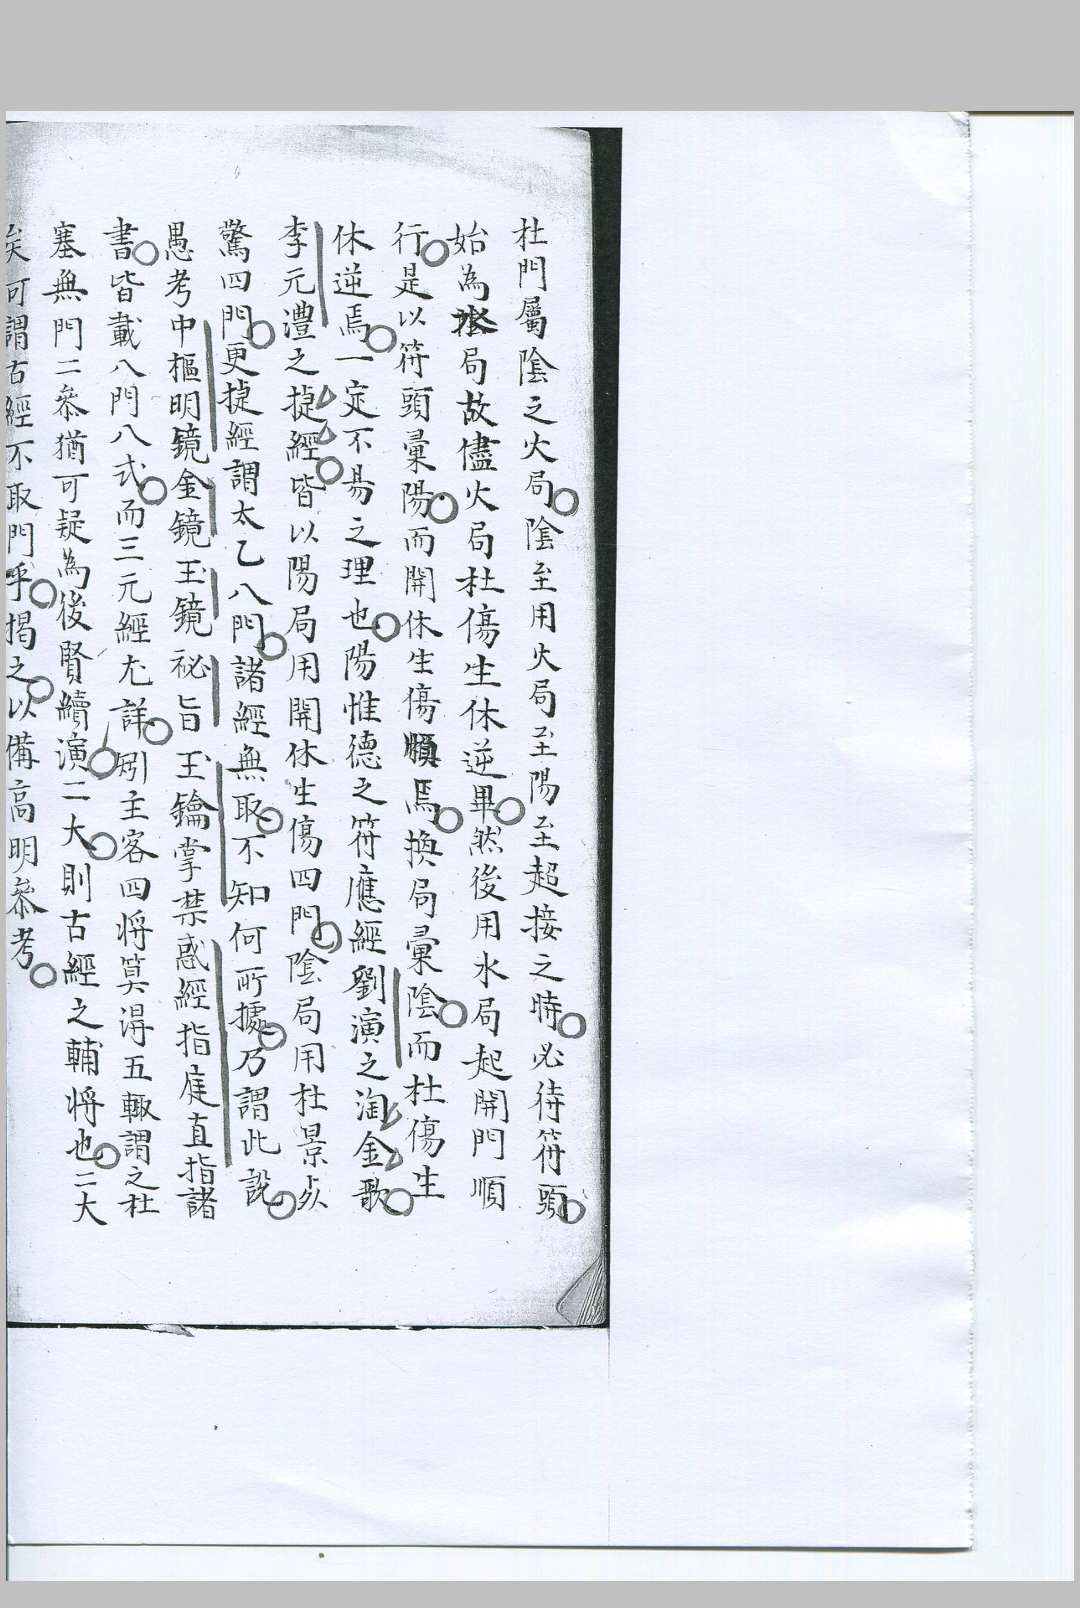 杜門屬陰之火局陰至用火局至陽至超接之時必待符頭
始為換局故儘火局杜傷生休逆畢然後用水局起開門順
行是以符頭彙陽而開休生傷順焉換局彙陰而杜傷生
休逆焉一定不易之理也陽惟德之符應經劉演之淘金歌
李元澧之捷經皆以陽局用開休生傷四門陰局用杜景死
驚四門更捷經謂太乙八門諸經無取不知何所據乃謂此說
愚考中樞明鏡金鏡玉鏡祕旨玉鑰掌禁惑經指庭直指諸
書皆載八門八式而三元經尤詳別主客四將筭得五輒謂之杜
塞無門二叅猶可疑為後賢續演二大則古經之輔將也二大
矣可謂古經不取門乎揭之以備高明叅考